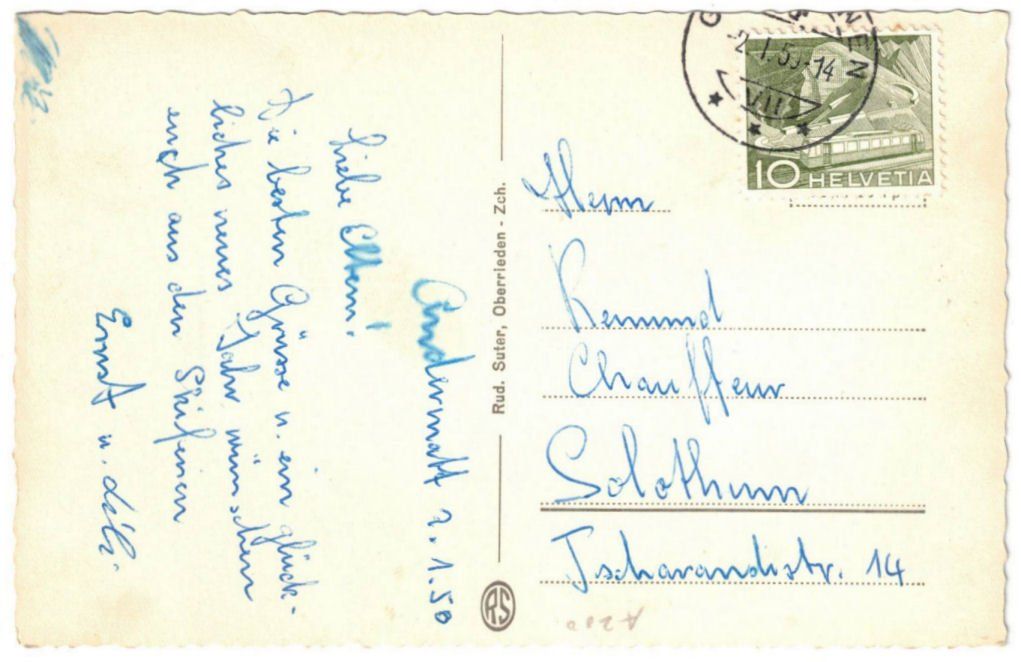 Andermatt 2.1.50
Liebe Eltern!
Die besten Grüsse u. ein glück-
liches neues Jahr wünschen
euch aus den Skiferien
Ernst u.
Rud. Suter, Oberrieden - Zch.
RS
-2.I.50-14
VIII
10 HELVETIA
Herrn
Remund
Chauffeur
Solothurn
Tscharandistr. 14
A200